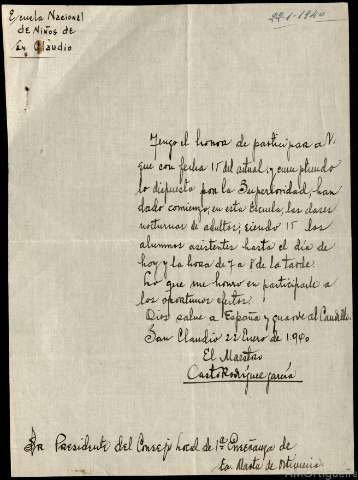 Escuela Nacional
de Niños de
San Claudio
22-1-1940
Tengo el honor de participar a V.
que con fecha 15 del actual, y cumpliendo
lo dispuesto por la Superioridad, han
dado comienzo, en esta Escuela, las clases
nocturnas de adultos; siendo 15 los
alumnos asistentes hasta el día de
hoy y la hora de 7 a 8 de la tarde.
Lo que me honro en participarle a
los oportunos efectos.
Dios salve a España y guarde al Caudillo.
San Claudio 22 Enero de 1940
El Maestro
Casto Rodríguez García
Sr Presidente del Consejo Local de 1ª Enseñanza de
Sta. Marta de Ortigueira